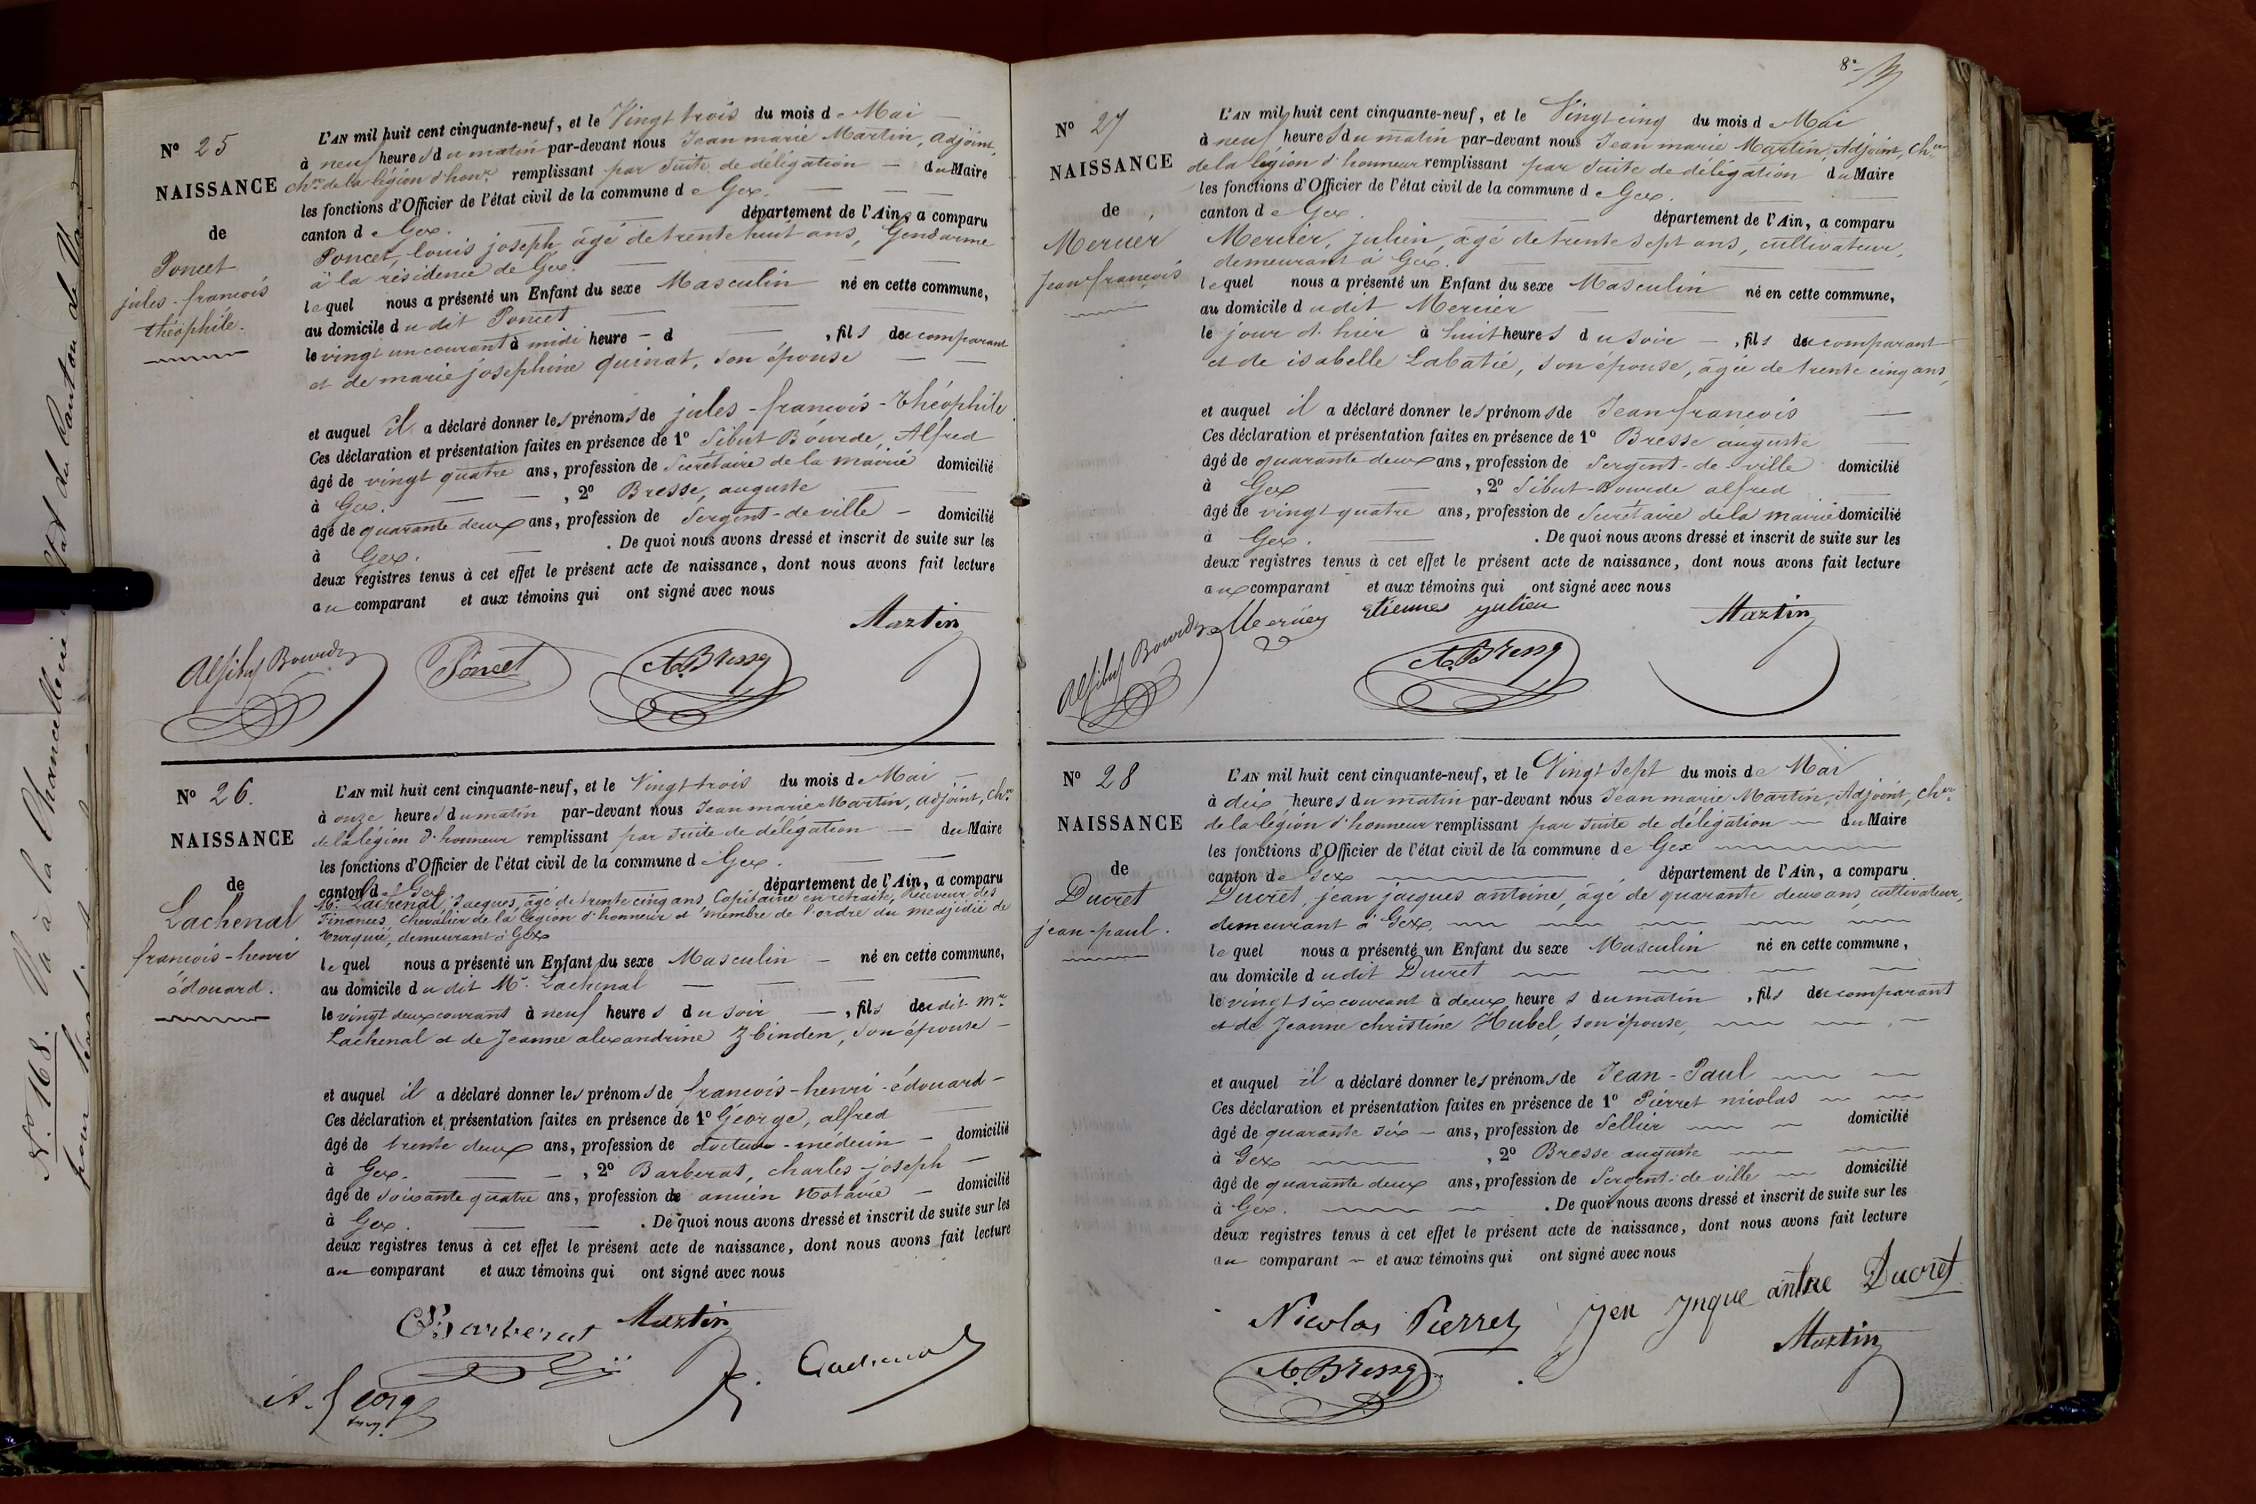 Nº 25
NAISSANCE
de
Poncet
jules-francois
théophile.
L'AN mil huit cent cinquante-neuf, et le Vingt trois du mois de Mai
à neuf heures du matin par-devant nous Jean marie Martin, adjoint,
chᵉʳ de la légion d'honʳ remplissant par suite de délégation du Maire
les fonctions d'Officier de l'état civil de la commune de Gex.
canton de Gex. département de l'Ain, a comparu
Poncet, louis joseph âgé de trente huit ans, Gendarme
à la résidence de Gex.
lequel nous a présenté un Enfant du sexe Masculin né en cette commune,
au domicile du dit Poncet
le vingt un courant à midi heure d , fils du comparant
et de marie josephine quinat, son épouse
et auquel il a déclaré donner les prénoms de jules-francois-Théophile
Ces déclaration et présentation faites en présence de 1º Sibut Bourde, Alfred
âgé de vingt quatre ans, profession de Secrétaire de la mairie domicilié
à Gex. , 2º Bresse, auguste
âgé de quarante deux ans, profession de Sergent-de ville domicilié
à Gex. . De quoi nous avons dressé et inscrit de suite sur les
deux registres tenus à cet effet le présent acte de naissance, dont nous avons fait lecture
au comparant et aux témoins qui ont signé avec nous
Martin
Poncet
A. Bresse
Nº 26.
NAISSANCE
de
Lachenal
francois-henri
édouard.
L'AN mil huit cent cinquante-neuf, et le Vingt trois du mois de Mai
à onze heures du matin par-devant nous Jean marie Martin, adjoint, chᵉʳ
de la légion d'honneur remplissant par suite de délégation du Maire
les fonctions d'Officier de l'état civil de la commune de Gex.
canton de Gex département de l'Ain, a comparu
Mʳ Lachenal, Jacques, âgé de trente cinq ans, Capitaine en retraite, Receveur des
Finances, chevalier de la légion d'honneur et membre de l'ordre du medjidié de
Turquie, demeurant à Gex
lequel nous a présenté un Enfant du sexe Masculin né en cette commune,
au domicile du dit Mʳ Lachenal
le vingt deux courant à neuf heures du soir , fils du dit mʳ
Lachenal et de Jeanne alexandrine Zbinden, son épouse
et auquel il a déclaré donner les prénoms de francois-henri-édouard
Ces déclaration et présentation faites en présence de 1º George, alfred
âgé de trente deux ans, profession de docteur-médecin domicilié
à Gex. , 2º Barberat, charles-joseph
âgé de soixante quatre ans, profession de ancien Notaire domicilié
à Gex. . De quoi nous avons dressé et inscrit de suite sur les
deux registres tenus à cet effet le présent acte de naissance, dont nous avons fait lecture
au comparant et aux témoins qui ont signé avec nous
Barberat Martin
Lachenal
8ᵉ
Nº 27
NAISSANCE
de
Mercier
Jean françois
L'AN mil huit cent cinquante-neuf, et le Vingt cinq du mois de Mai
à neuf heures du matin par-devant nous Jean marie Martin, Adjoint, Chᵉʳ
de la légion d'honneur remplissant par suite de délégation du Maire
les fonctions d'Officier de l'état civil de la commune de Gex.
canton de Gex. département de l'Ain, a comparu
Mercier, Julien, âgé de trente sept ans, cultivateur,
demeurant à Gex.
lequel nous a présenté un Enfant du sexe Masculin né en cette commune,
au domicile du dit Mercier
le jour d'hier à huit heures du soir , fils du comparant
et de isabelle Labatié, son épouse, âgée de trente cinq ans,
et auquel il a déclaré donner les prénoms de Jean françois
Ces déclaration et présentation faites en présence de 1º Bresse auguste
âgé de quarante deux ans, profession de Sergent-de-ville domicilié
à Gex , 2º Sibut-Bourde alfred
âgé de vingt quatre ans, profession de Secrétaire de la mairie domicilié
à Gex. . De quoi nous avons dressé et inscrit de suite sur les
deux registres tenus à cet effet le présent acte de naissance, dont nous avons fait lecture
aux comparant et aux témoins qui ont signé avec nous
julien Martin
A. Bresse
Nº 28
NAISSANCE
de
Ducret
jean-paul.
L'AN mil huit cent cinquante-neuf, et le Vingt sept du mois de Mai
à dix heures du matin par-devant nous Jean marie Martin, Adjoint, chᵉʳ
de la légion d'honneur remplissant par suite de délégation du Maire
les fonctions d'Officier de l'état civil de la commune de Gex
canton de Gex département de l'Ain, a comparu
Ducret, jean jacques antoine, âgé de quarante deux ans, cultivateur,
demeurant à Gex,
lequel nous a présenté un Enfant du sexe Masculin né en cette commune,
au domicile du dit Ducret
le vingt six courant à deux heures du matin , fils du comparant
et de Jeanne christine Hubel, son épouse,
et auquel il a déclaré donner les prénoms de Jean-Paul
Ces déclaration et présentation faites en présence de 1º Pierret nicolas
âgé de quarante six ans, profession de Sellier domicilié
à Gex , 2º Bresse auguste
âgé de quarante deux ans, profession de Sergent-de ville domicilié
à Gex. . De quoi nous avons dressé et inscrit de suite sur les
deux registres tenus à cet effet le présent acte de naissance, dont nous avons fait lecture
au comparant et aux témoins qui ont signé avec nous
Nicolas Pierret Ducret
Martin
A. Bresse
Nº 168. Vu à la Chancellerie